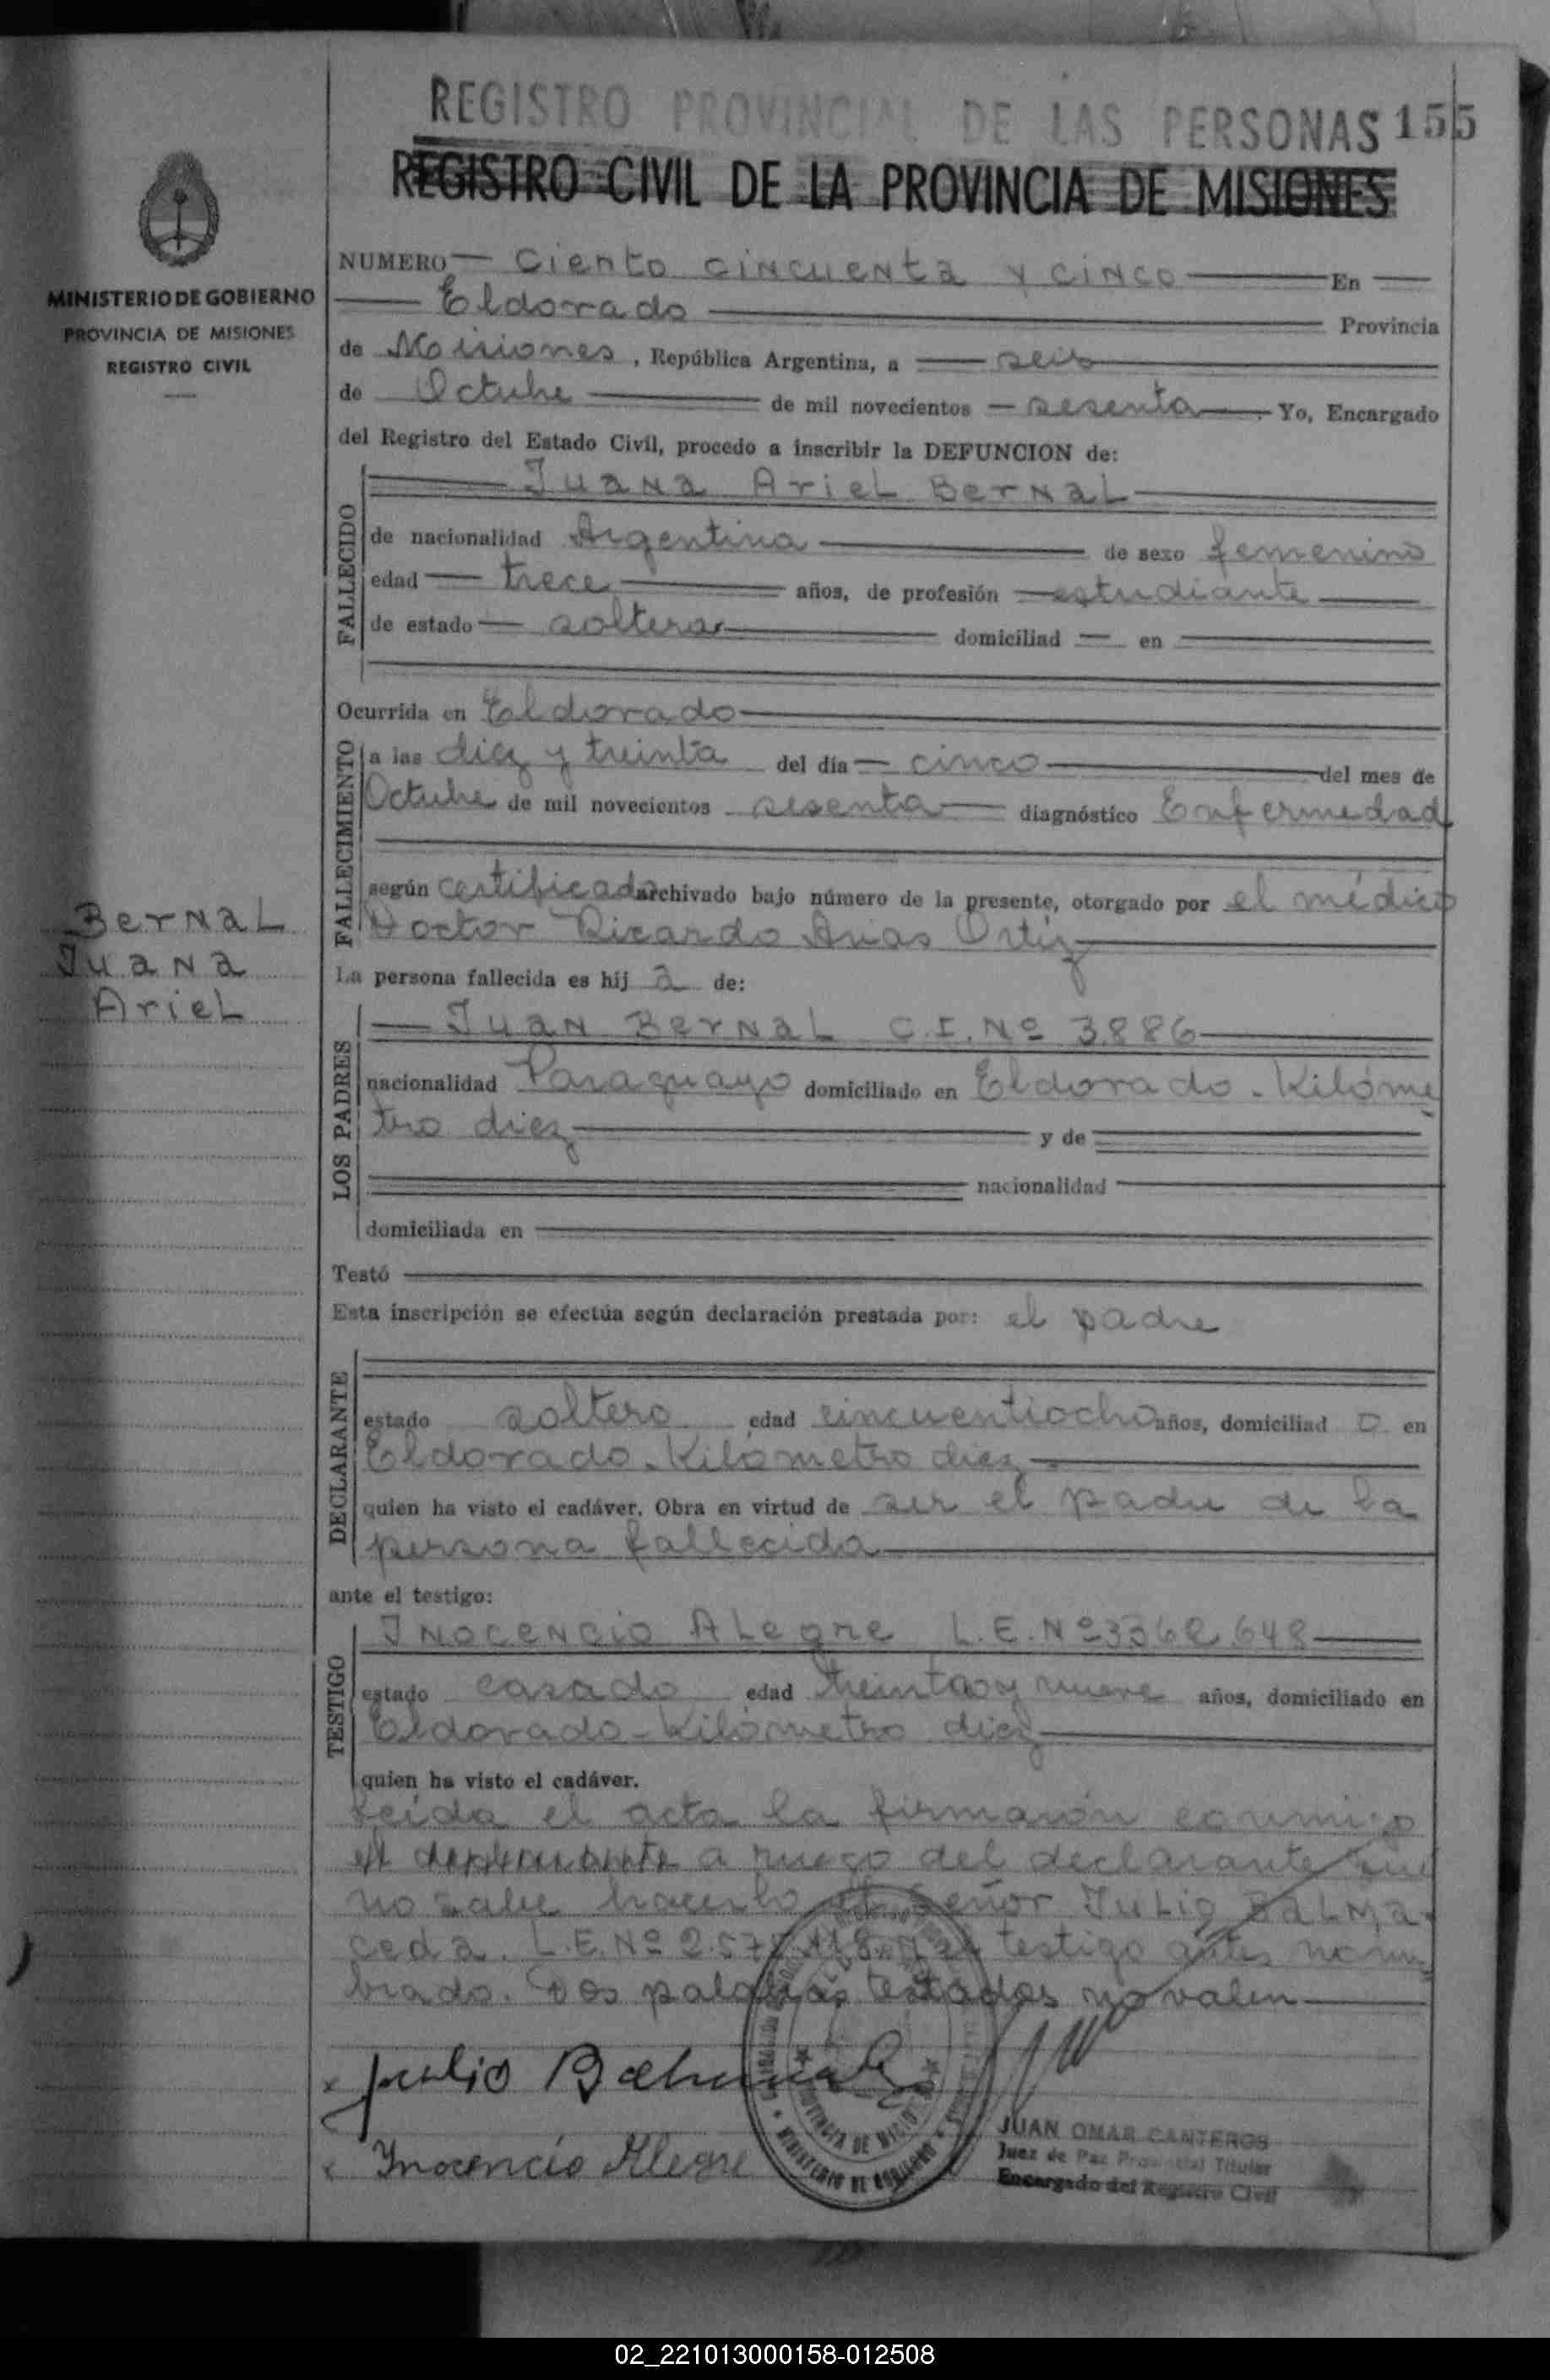 REGISTRO PROVINCIAL DE LAS PERSONAS 155
REGISTRO CIVIL DE LA PROVINCIA DE MISIONES
MINISTERIO DE GOBIERNO
PROVINCIA DE MISIONES
REGISTRO CIVIL
Bernal
Juana
Ariel
NUMERO Ciento cincuenta y cinco En
Eldorado Provincia
de Misiones, República Argentina, a seis
de Octubre de mil novecientos sesenta Yo, Encargado
del Registro del Estado Civil, procedo a inscribir la DEFUNCION de:
FALLECIDO
Juana Ariel Bernal
de nacionalidad Argentina de sexo femenino
edad trece años, de profesión estudiante
de estado soltera domiciliad en
Ocurrida en Eldorado
FALLECIMIENTO
a las diez y treinta del día cinco del mes de
Octubre de mil novecientos sesenta diagnóstico Enfermedad
según certificado archivado bajo número de la presente, otorgado por el médico
Doctor Ricardo Arias Ortiz
La persona fallecida es hij a de:
LOS PADRES
Juan Bernal C.I. Nº 3.886
nacionalidad Paraguayo domiciliado en Eldorado - Kilóme
tro diez y de
nacionalidad
domiciliada en
Testó
Esta inscripción se efectúa según declaración prestada por: el padre
DECLARANTE
estado soltero edad cincuentiocho años, domiciliad o en
Eldorado - Kilómetro diez
quien ha visto el cadáver. Obra en virtud de ser el padre de la
persona fallecida
ante el testigo:
TESTIGO
Inocencio Alegre L.E. Nº
estado casado edad treinta y nueve años, domiciliado en
Eldorado - Kilómetro diez
quien ha visto el cadáver.
Leída el acta la firmarón conmigo
a ruego del declarante que
no sabe hacerlo el Señor Julio Balma-
ceda. L.E. Nº testigo antes nom
brado. Dos palabras testadas no valen
Julio Balmaceda
Inocencio Alegre
PROVINCIA DE MISIONES
MINISTERIO DE GOBIERNO
JUAN OMAR CANTEROS
Juez de Paz Provincial Titular
Encargado del Registro Civil
02_221013000158-012508